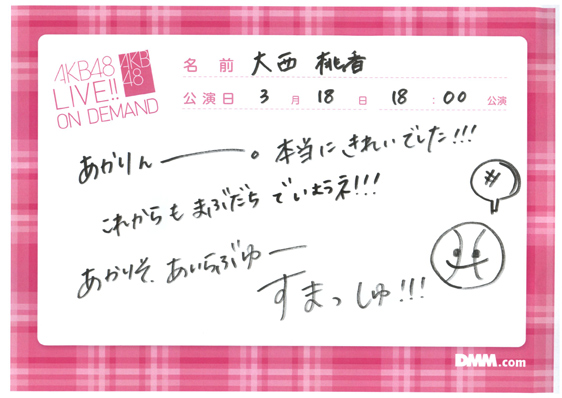 AKB48
LIVE!!
ON DEMAND
AKB
48
名前 大西 桃香
公演日 3月 18日 18:00 公演
あかりんー。本当にきれいでした!!!
これからもまぶだちでいようネ!!!
あかりそ、あいらぶゆー
すまっしゅ!!!
DMM.com